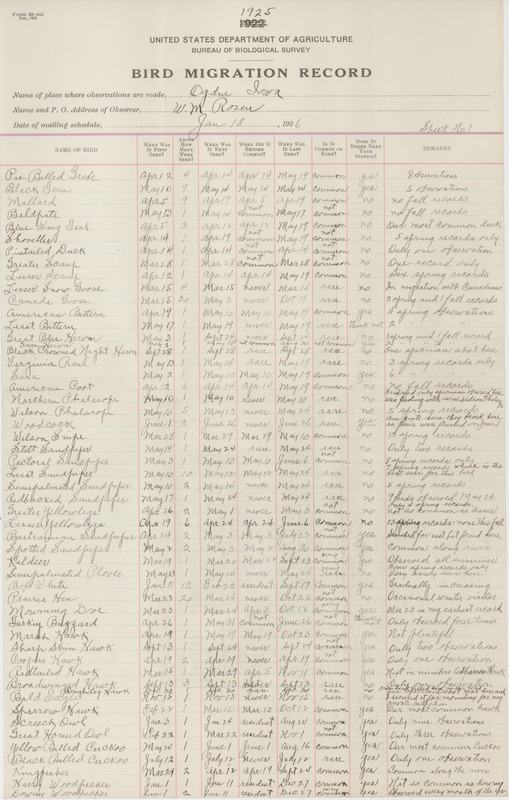 Form Bi-155
1925
1922
UNITED STATES DEPARTMENT OF AGRICULTURE
BUREAU OF BIOLOGICAL SURVEY
BIRD MIGRATION RECORD
Name of place where observations are made, Ogden Iowa
Name and P. O. Address of Observer, W. M. Rosen
Date of mailing schedule, Jan 18, 1926
Sheet No 1
NAME OF BIRD WHEN WAS IT FIRST SEEN? ABOUT HOW MANY WERE SEEN? WHEN WAS IT NEXT SEEN? WHEN DID IT BECOME COMMON? WHEN WAS IT LAST SEEN? IS IT COMMON OR RARE? DOES IT BREED NEAR YOUR STATION? REMARKS
Pie Billed Grebe Apr 12 4 Apr 14 Apr 14 May 19 common yes 8 observations
Black Tern May 10 9 May 14 May 14 May 24 common yes 5 observations
Mallard Apr 5 9 Apr 19 Apr 5 Apr 19 common no no fall records
Baldpate May 13 1 May 14 not common May 17 not common no no fall records
Blue Wing Teal Apr 5 3 Apr 12 Apr 12 May 19 common no Our most common duck
Shoveller Apr 14 1 Apr 19 not common May 19 not common no 5 spring records only
Pintailed Duck Apr 14 1 Apr 14 common no Only one observation
Greater Scaup Mar 28 1 Mar 28 not common Mar 28 not common no One record only
Lesser Scaup Apr 12 1 Apr 14 Apr 14 May 19 common no Six spring records
Lesser Snow Goose Mar 15 4 Mar 15 never Mar 15 rare no In migration with Canadians
Canada Goose Mar 15 30 May 3 never Oct 11 rare no 2 spring and 1 fall records
American Bittern Apr 19 1 May 10 May 10 May 19 common yes 4 spring observations
Least Bittern May 17 1 May 19 never May 19 rare think not 2 " "
Great Blue Heron May 3 1 Sept 24 never Sept 24 rare no 1 spring and 1 fall record
Green Heron
Black Crowned Night Heron Sept 28 1 Sept 28 rare Sept 28 rare no One specimen shot here
Virginia Rail May 13 1 May 14 rare May 19 rare no 3 spring records only
Sora May 3 1 May 10 May 10 May 19 common yes 6 " "
American Coot Apr 12 6 Apr 14 Apr 14 May 19 common no No fall records
Northern Phalarope May 10 1 May 10 never May 10 rare no
Wilson Phalarope May 10 5 May 13 never May 24 rare no 5 spring records
Woodcock June 1 2 June 26 never June 26 rare yes
Wilson Snipe Mar 28 1 Mar 29 Mar 29 May 10 common no 13 spring records
Stilt Sandpiper May 19 1 May 24 rare May 24 rare no Only two records
Pectoral Sandpiper May 3 1 May 10 May 10 June 6 not common no 7 spring records only
Least Sandpiper May 10 10 May 12 May 12 May 24 rare no
Semipalmated Sandpiper May 10 2 May 14 never May 24 rare no 5 spring records
Redbacked Sandpiper May 17 1 May 24 never May 24 rare no
Greater Yellowlegs Apr 26 2 May 1 never May 3 not common no not as common as lesser
Lesser Yellowlegs Apr 19 6 Apr 24 Apr 24 June 6 common no 13 spring records none this fall
Bartramian Sandpiper Apr 24 2 May 3 May 3 July 23 not common yes
Spotted Sandpiper May 2 2 May 3 May 2 common yes Common along river
Killdeer Mar 19 1 Mar 20 Mar 22 Sept 13 very common yes Observed all summer
Semipalmated Plover May 13 1 May 14 never May 24 rare no
Bob White Jan 11 12 Feb 22 residut Sept 17 common yes Gradually increasing
Prairie Hen Mar 23 20 Mar 24 never Oct 25 not common no Occasional winter visitor
Mourning Dove Mar 23 1 Mar 24 Apr 3 Oct 12 very common yes Mar 23 is my earliest record
Turkey Buzzard Apr 26 1 May 31 not common June 26 not common think yes Only observed four times
Marsh Hawk Apr 19 1 May 19 May 19 Oct 23 not common yes Not plentiful
Sharp Shin Hawk Sept 13 1 Sept 24 never Sept 24 yes Only two observations
Coopers Hawk Apr 19 2 Apr 19 never Apr 19 common yes Only one observation
Redtailed Hawk Mar 15 1 Mar 29 Apr 5 Nov 11 common yes
Broadwinged Hawk Sept 13 3 Sept 13 Sept 13 rare no
Roughleg Hawk
Bald Eagle Nov 12 1 Nov 15 never Nov 15 rare no
Sparrow Hawk Feb 27 1 Mar 15 Mar 15 Oct 12 common yes Our most common hawk
Screech Owl Jan 3 1 Jan 24 residut Aug 24 common yes Only nine observations
Great Horned Owl Feb 22 1 Mar 22 residut Nov 1 not common yes Only three observations
Yellow Billed Cuckoo May 24 1 June 1 June 1 Aug 16 common yes Our most common Cuckoo
Black Billed Cuckoo July 12 1 July 12 never July 12 rare yes Only one observation
Kingfisher Mar 29 2 Apr 12 Apr 19 Sept 24 common yes Common along the river
Hairy Woodpecker Jan 1 1 Jan 11 residut Dec 27 common yes Not so common as downy
Downy Woodpecker Jan 1 2 Jan 11 residut Dec 27 very common yes Observed every month of the year